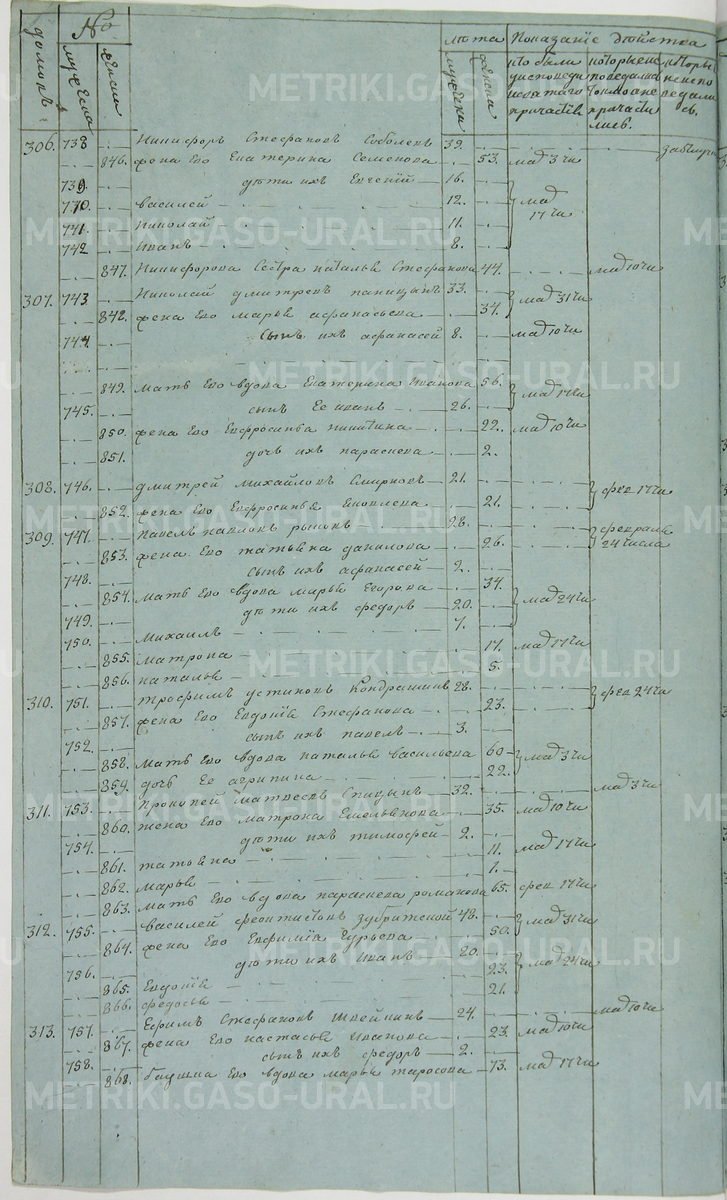 домовъ
№
мужеска
женска
лѣта
мужеска
женска
Показанïе дѣйства
кто были у исповѣди и святаго причастïя
которыеже исповѣдались токмо а не причастились
которые не исповѣдались
306. 738 Никифоръ Стефановъ Соболевъ 39.
846. жена Его Екатерина Семенова 53. мая 3 чи
739. дѣти ихъ Евгенïй 16.
770. василей 12. мая
741. Николай 11. 17 чи
742 Иванъ 8.
847. Никифорова Сестра наталья Стефанова 44. мая 10 чи
307. 743 Николай дмитревъ паницынъ 33. мая 31 чи
848. жена Его марья афанасьева 34.
744. сынъ ихъ афанасей 8. мая 10 чи
849. мать Его вдова Екатерина Иванова 56. мая 17 чи
745. сынъ Ее иванъ 26.
850. жена Его Евфросинья никитина 22. мая 10 чи
851. дочь ихъ параскева 2.
308. 746. дмитрей михайловъ Смирновъ 21. фев 17 чи
852. жена Его Евфросинья Яковлева 21.
309. 747. павелъ павловъ 28. февраля
853. жена Его татьяна данилова 26. 24 числа
748. сынъ ихъ афанасей 2.
854. мать Его вдова марья Егорова 34.
749. дѣти ихъ федоръ 20. мая 24 чи
750. михаилъ 7.
855. матрона 17. мая 17 чи
856. наталья 5.
310. 751. трофимъ устиновъ Кондрашинъ 28. фев 24 чи
857. жена Его Евдокïя Стефанова 23.
752. сынъ ихъ павелъ 3.
858. мать Его вдова наталья васильева 60 мая 3 чи
859. дочь Ее агрипина 22.
311. 753. прокопей матвеевъ Спицынъ 32. мая 3 чи
860. жена Его матрона Емельянова 35. мая 10 чи
754. дѣти ихъ тимофей 2.
861. татьяна 11. мая 17 чи
862. марья 1.
863. мать Его вдова параскева романова 65. фев 17 чи
312. 755. василей 48. мая 31 чи
864. жена Его Евфимïя Гурьева 50.
756. дѣти ихъ Иванъ 20. мая 24 чи
865. Евдокïя 23.
866. федосья 21.
313. 757. Ефимъ Стефановъ 24. мая 10 чи
867. жена Его настасья Иванова 23. мая 10 чи
758. сынъ ихъ федоръ 2.
868. баушка Его вдова марья тарасова 73. мая 17 чи
METRIKI.GASO-URAL.RU